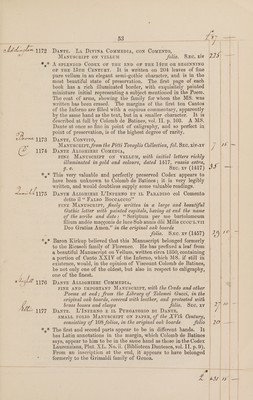 53
1172 Dante. La Divina Commedia, con Comento,
Manuscript on vellum folio. Sec. xiv
*** A splendid Codex of the end of the 14th or beginning
of the 15th Century. It is written on 204 leaves of fine
pure vellum in an elegant semi-gothic character, and is in the
most beautiful state of preservation. The first page of each
book has a rich illuminated border, with exquisitely painted
miniature initial representing a subject mentioned in the Poem.
The coat of arms, showing the family for whom the MS. was
written has been erased. The margins of the first ten Cantos
of the Inferno are filled with a copious commentary, apparently
by the same hand as the text, but in a smaller character. It has
been described at full by Colomb de Batines, vol. II. p. 103. A MS.
Dante at once so fine in point of caligraphy, and so perfect in
point of preservation, is of the highest degree of rarity.
1173 Dante, Convito,
Manuscript, from the Pitti Tempila Collection, fol. Sec. xiv-xv
1174 Dante Aligherii Comedia,
fine Manuscript on vellum, with initial letters richly
illuminated in gold and colours, dated 1417, russia extra,
Sec. xv (1417)
*** This very valuable and perfectly preserved Codex appears to
have been unknown to Colomb de Batines; it is very legibly
written, and would doubtless supply some valuable readings.
1175 Dante Aligherii L'Inferno et il Paradiso col Comento
detto il "Falso Boccaccio"
fine Manuscript, finely written in a large and beautiful
Gothic letter with painted capitals, having at end the name
of the scribe and date: "
in the original oak boards
folio. Sec. xv (1457)
*** Baron Kirkup believed that this Manuscript belonged formerly
to the Rinucili family of Florence. He has prefixed a leaf from
a beautiful Manuscript on Vellum, written circa 1350, containing
a portion of Canto XXIV of the Inferno, which MS. if still in
existence, would, in the opinion of Viscount Colomb de Batines,
be not only one of the oldest, but also in respect to caligraphy,
one of the finest.
1176 Dante Aligherii Commedia,
fine and important Manuscript, with the Credo and other
Poems at end; from the Library of Tolomei Gucci, in the
original oak boards, covered with leather, and protected with
brass bosses and clasps folio. Sec. xv
1177 Dante. L'Inferno e il Purgatorio di Dante,
small folio Manuscript on paper, of the XVth Century,
consisting of 108 folios, in the original oak boards folio
*** The first and second parts appear to be in different hands. It
has Latin annotations in the margin, which Colomb de Batines
says, appear to him to be in the same hand as those in the Codex
Laurenziana, Plut XL. No. ii. (Biblioteca Dantesca, vol. II. p. 9).
From an inscription at the end, it appears to have belonged
formerly to the Grimaldi family of Genoa.